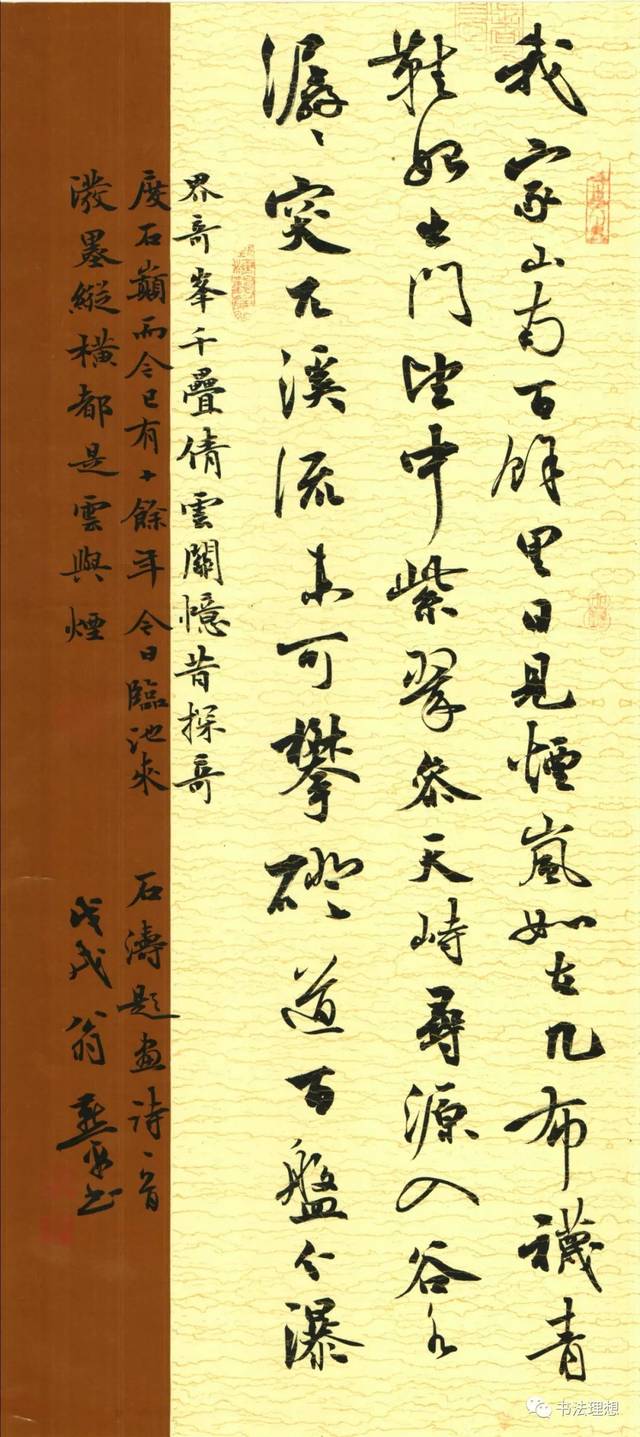 我家山南百餘里日見煙嵐如在几布襪青
鞋始出門望中紫翠參天峙尋源入谷水
潺〻突兀溪流未可攀磴道百盤分瀑
界奇峯千疊倩雲關憶昔探奇
度石巔而今已有十餘年今日臨池來 石濤題畫詩一首
潑墨縱橫都是雲與煙 戊戌翁書
书法理想